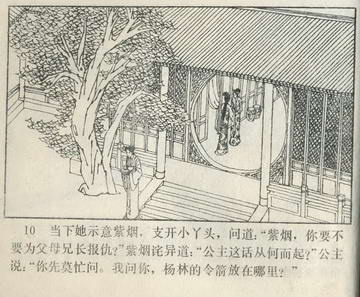 10 当下她示意紫烟,支开小丫头,问道:“紫烟,你要不
要为父母兄长报仇?”紫烟诧异道:“公主这话从何而起?”公主
说:“你先莫忙问。我问你,杨林的令箭放在哪里?”